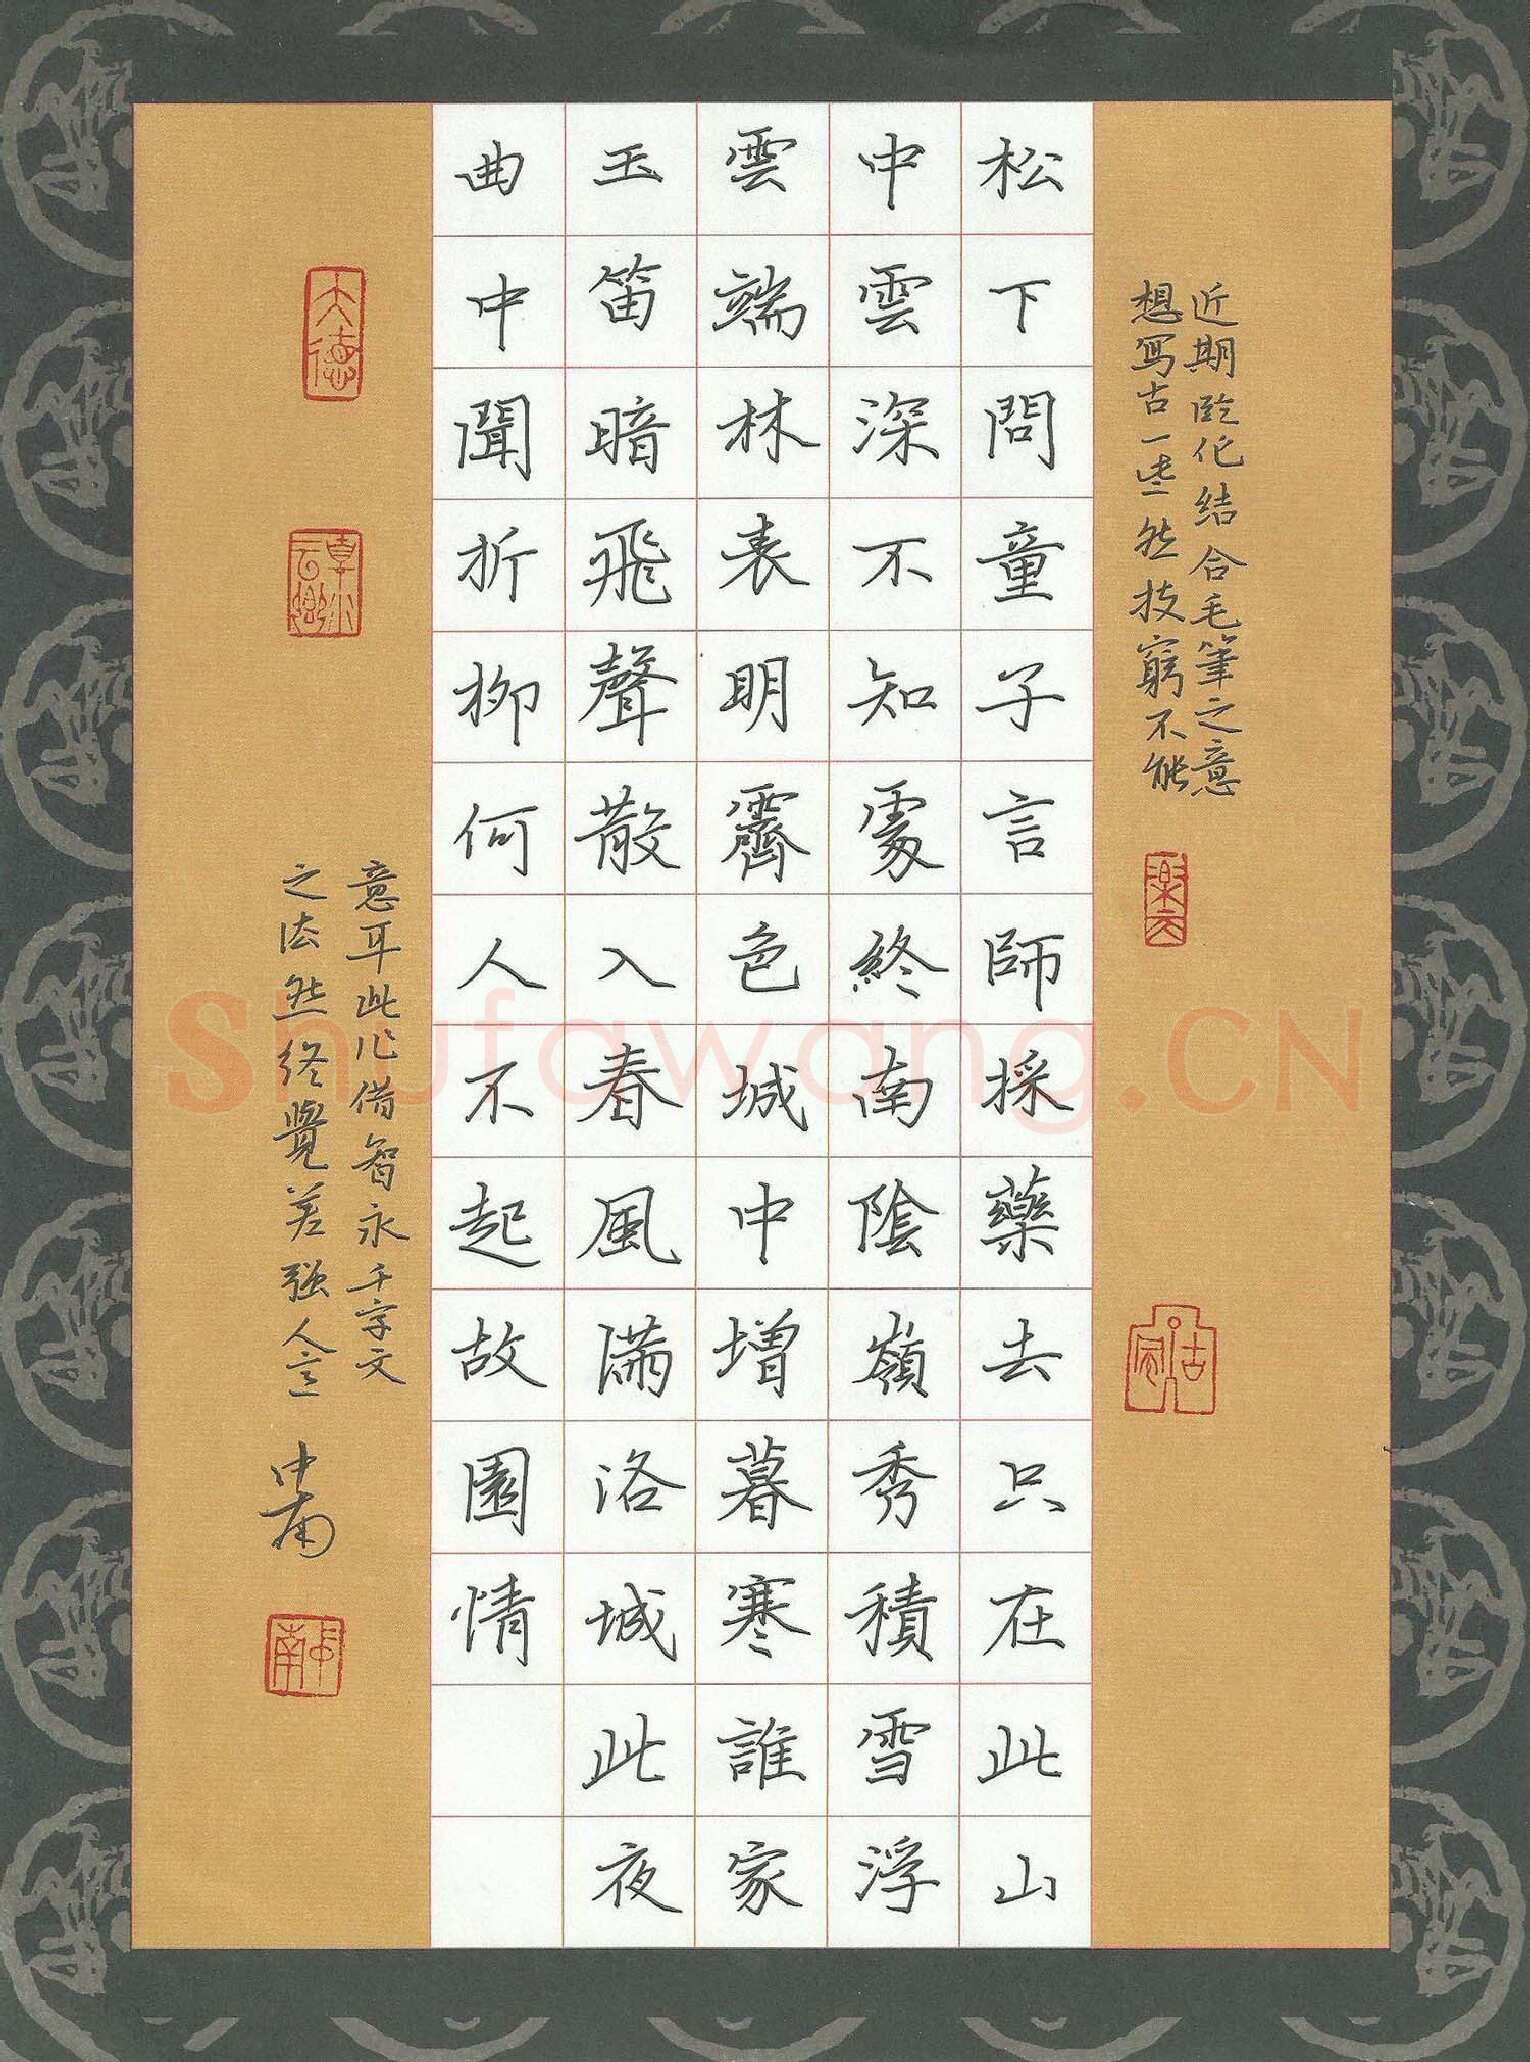 近期臨作结合毛筆之意
想写古一些然技窮不能
松下問童子言師採藥去只在此山
中雲深不知處終南陰嶺秀積雪浮
雲端林表明霽色城中增暮寒誰家
玉笛暗飛聲散入春風滿洛城此夜
曲中聞折柳何人不起故園情
大德
意耳此作借智永千字文
之法然终覺差强人意
中南
中南
Shufawang.CN